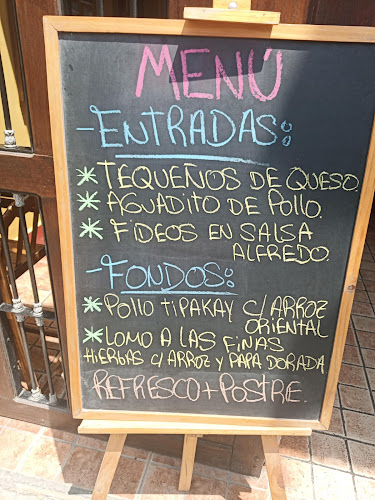 MENÚ
-ENTRADAS:
* TEQUEÑOS DE QUESO.
* AGUADITO DE POLLO.
* FIDEOS EN SALSA
ALFREDO.
-FONDOS:
* POLLO TIPAKAY C/ARROZ
ORIENTAL
* LOMO A LAS FINAS
HIERBAS C/ARROZ Y PAPA DORADA
REFRESCO + POSTRE.